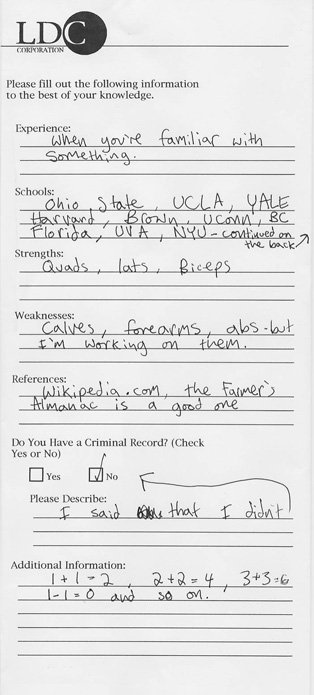 LDC
CORPORATION
Please fill out the following information
to the best of your knowledge.
Experience:
When you're familiar with
something.
Schools:
Ohio, State, UCLA, YALE
Harvard, Brown, UConn, BC
Florida, UVA, NYU - continued on
the back
Strengths:
Quads, lats, Biceps
Weaknesses:
Calves, forearms, abs - but
I'm working on them.
References:
Wikipedia.com, the Farmer's
Almanac is a good one
Do You Have a Criminal Record? (Check
Yes or No)
Yes No
Please Describe:
I said that I didn't
Additional Information:
1 + 1 = 2, 2 + 2 = 4, 3 + 3 = 6
1 - 1 = 0 and so on.